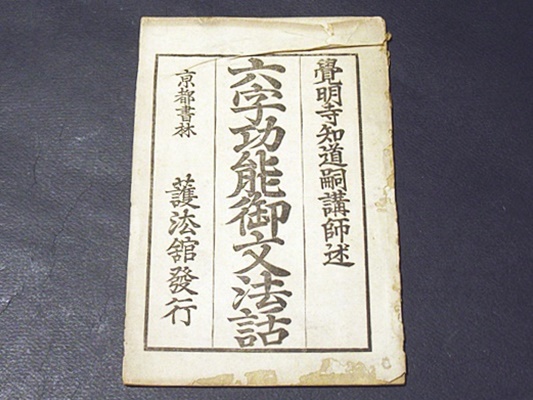 覺明寺知道嗣講師述
六字功能御文法話
京都書林
護法舘發行